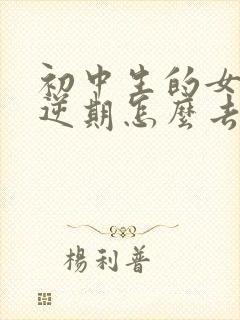 初中生的女
逆期怎麼去
楊利普